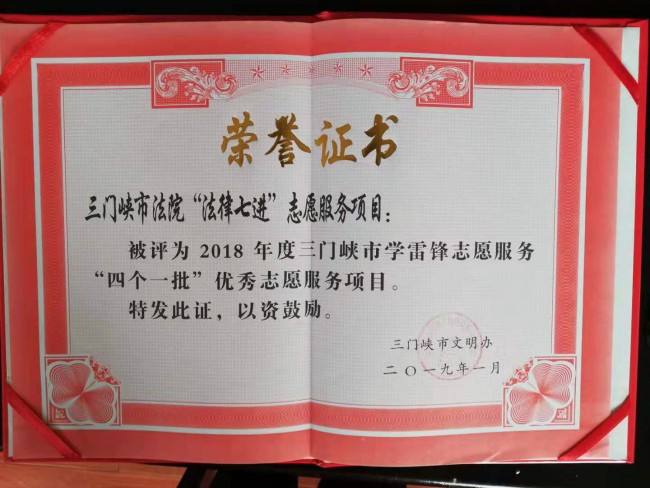 荣誉证书
三门峡市法院“法律七进”志愿服务项目：
被评为 2018 年度三门峡市学雷锋志愿服务
“四个一批”优秀志愿服务项目。
特发此证，以资鼓励。
三门峡市文明办
二〇一九年一月